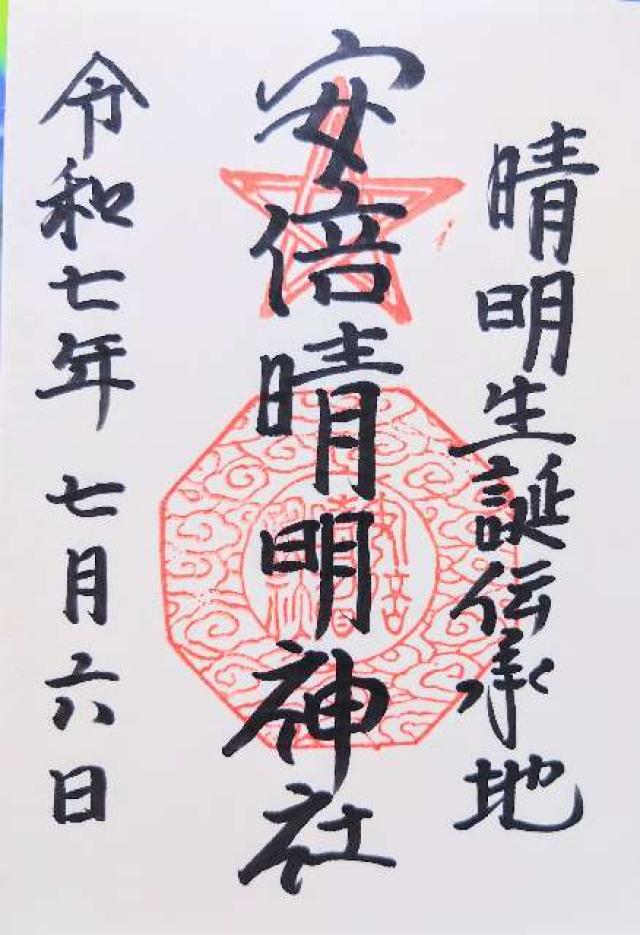 晴明生誕伝承地
安倍晴明神社
令和七年 七月六日